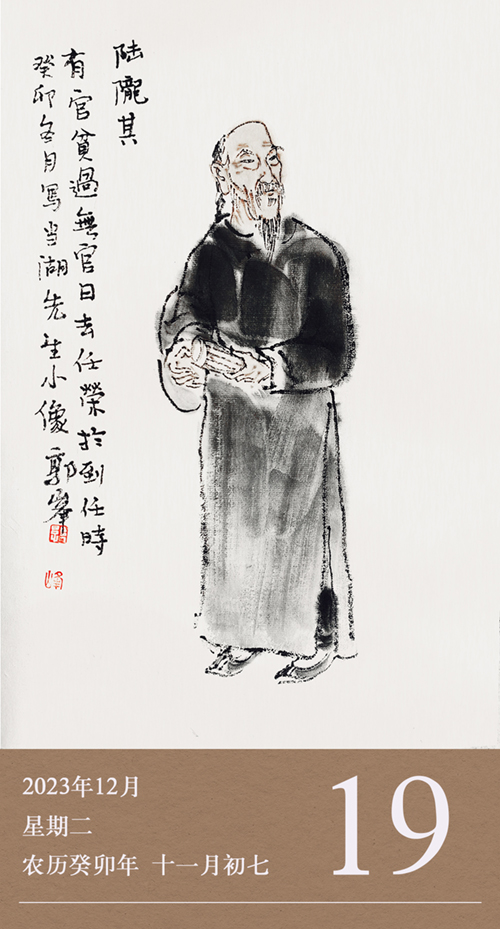 陆陇其
有官貧過無官日去任榮於到任時
癸卯冬月写当湖先生小像 郭峯
2023年12月
星期二
农历癸卯年 十一月初七
19